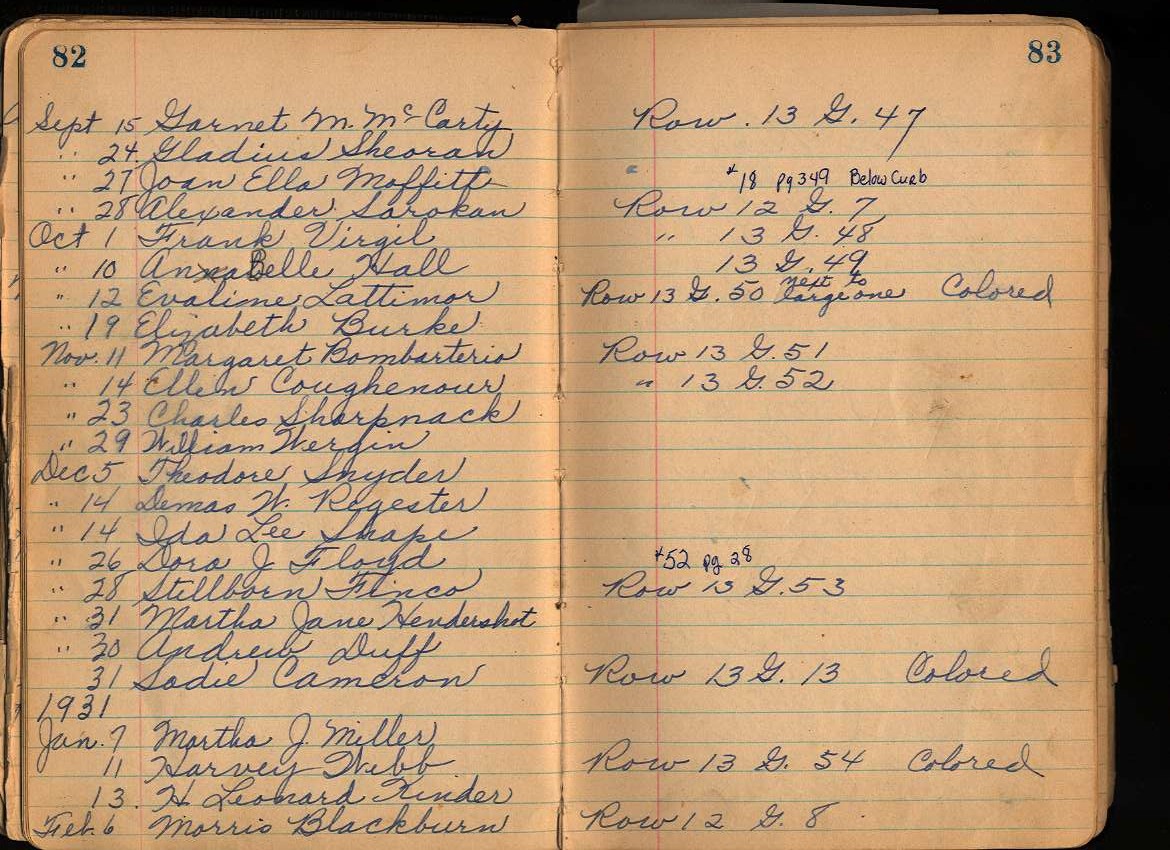 82
83
Sept 15 Garnet M. McCarty Row. 13 G. 47
" 24. Gladius Sheoran
" 27 Joan Ella Moffitt *18 pg 349 Below Curb
" 28 Alexander Sarokan Row 12 G. 7
Oct 1 Frank Virgil " 13 G. 48
" 10 AnnaBelle Hall 13 G. 49
" 12 Evaline Lattimor Row 13 G. 50 next to large one Colored
" 19 Elizabeth Burke
Nov. 11 Margaret Bombarterio Row 13 G. 51
" 14 Ellen Coughenour " 13 G. 52
" 23 Charles Sharpnack
" 29 William Wergin
Dec 5 Theodore Snyder
" 14 Demas W. Regester
" 14 Ida Lee Shape
" 26 Dora J Floyd *52 pg 28
" 28 Stillborn Finco Row 13 G. 53
" 31 Martha Jane Hendershot
" 30 Andrew Duff
31 Sadie Cameron Row 13 G. 13 Colored
1931
Jan. 7 Martha J Miller
11 Harvey Webb Row 13 G. 54 Colored
13. H Leonard Kinder
Feb. 6 Morris Blackburn Row 12 G. 8